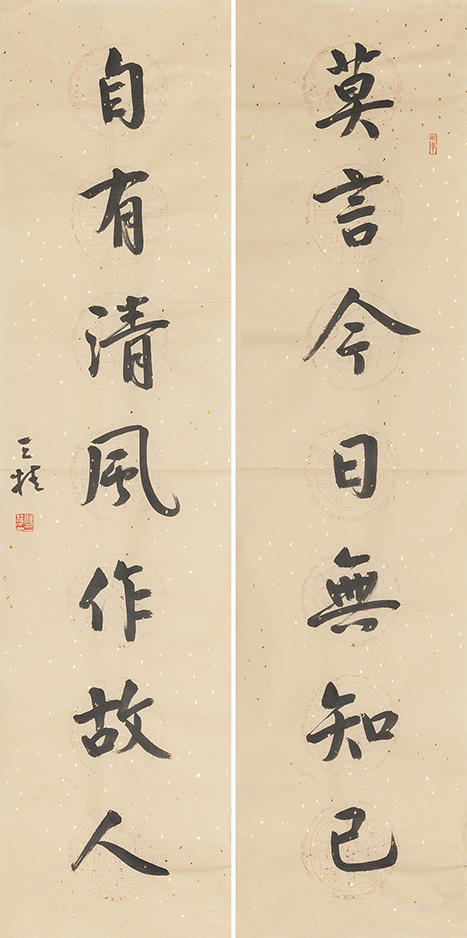 莫言今日無知己
自有清風作故人